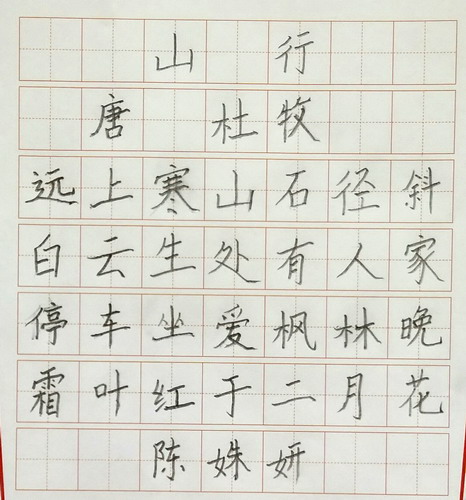 山行
唐 杜牧
远上寒山石径斜
白云生处有人家
停车坐爱枫林晚
霜叶红于二月花
陈姝妍